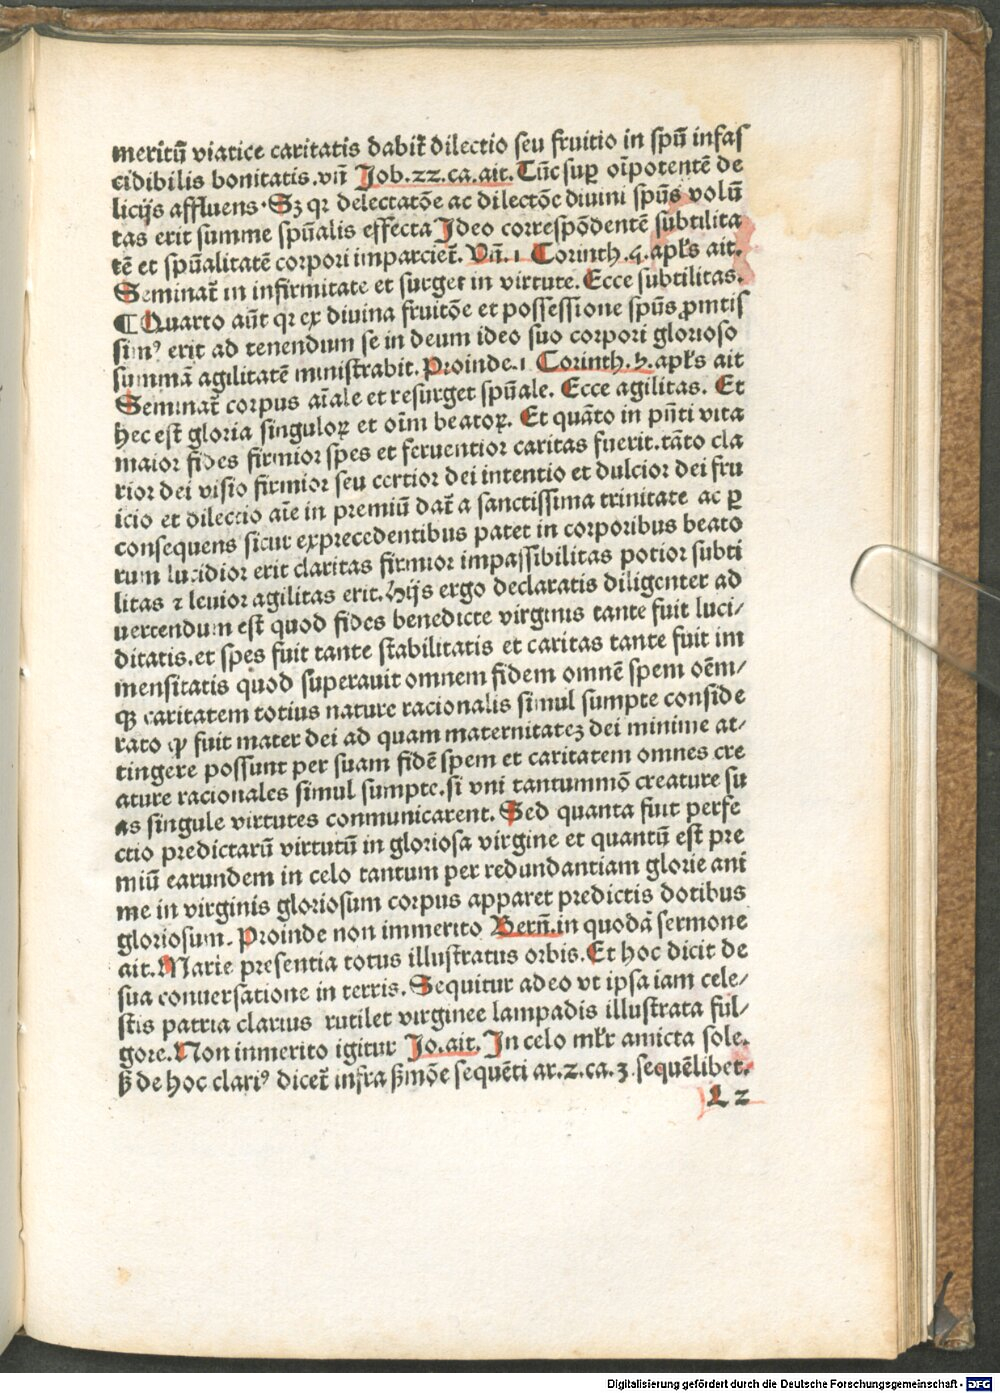 meritū viatice caritatis dabit̄ dilectio seu fruitio in spū infas
cidibilis bonitatis.vn̄ Job.22.ca.ait.Tūc suꝑ oīpotentē de
licijs affluens.Sꝫ qꝛ delectatōe ac dilectōe diuini spūs volū
tas erit summe spūalis effecta Ideo correspōdentē subtilita
tē et spūalitatē corpori imparciet̄. Vn̄.1 Corinth.4.apl̄s ait.
Seminat̄ in infirmitate et surget in virtute.Ecce subtilitas.
¶Quarto aūt qꝛ ex diuina fruitōe et possessione spūs ꝓmtis
simꝰ erit ad tenendum se in deum ideo suo corpori glorioso
summā agilitatē ministrabit.Proinde.1 Corinth.5.apl̄s ait
Seminat̄ corpus aīale et resurget spūale. Ecce agilitas. Et
hec est gloria singuloꝝ et oīm beatoꝝ. Et quāto in pn̄ti vita
maior fides firmior spes et feruentior caritas fuerit.tāto cla
rior dei visio firmior seu certior dei intentio et dulcior dei fru
icio et dilectio aīe in premiū dat̄ a sanctissima trinitate ac ꝑ
consequens sicut exprecedentibus patet in corporibus beato
rum lucidior erit claritas firmior impassibilitas potior subti
litas ⁊ leuior agilitas erit.Hijs ergo declaratis diligenter ad
uertendum est quod fides benedicte virginis tante fuit luci/
ditatis.et spes fuit tante stabilitatis et caritas tante fuit im
mensitatis quod superauit omnem fidem omnē spem oēm/
qꝫ caritatem totius nature racionalis simul sumpte conside
rato ꝙ fuit mater dei ad quam maternitateꝫ dei minime at/
tingere possunt per suam fidē spem et caritatem omnes cre
ature racionales simul sumpte.si vni tantummō creature su
as singule virtutes conmunicarent. Sed quanta fuit perfe
ctio predictarū virtutū in gloriosa virgine et quantū est pre
miū earundem in celo tantum per redundantiam glorie ani
me in virginis gloriosum corpus apparet predictis dotibus
gloriosum. Proinde non immerito Bern̄.in quodā sermone
ait.Marie presentia totus illustratus orbis.Et hoc dicit de
sua conuersatione in terris.Sequitur adeo vt ipsa iam cele/
stis patria clarius rutilet virginee lampadis illustrata ful/
gore.Non inmerito igitur Jo.ait. In celo ml̄r amicta sole.
ß de hoc clariꝰ dicet̄ infra ßmōe sequēti ar.2.ca.3.sequēlibet.
L2
Digitalisierung gefördert durch die Deutsche Forschungsgemeinschaft - DFG